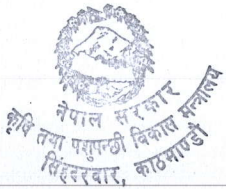 नेपाल सरकार
कृषि तथा पशुपन्छी विकास मन्त्रालय
सिंहदरबार, काठमाण्डौं